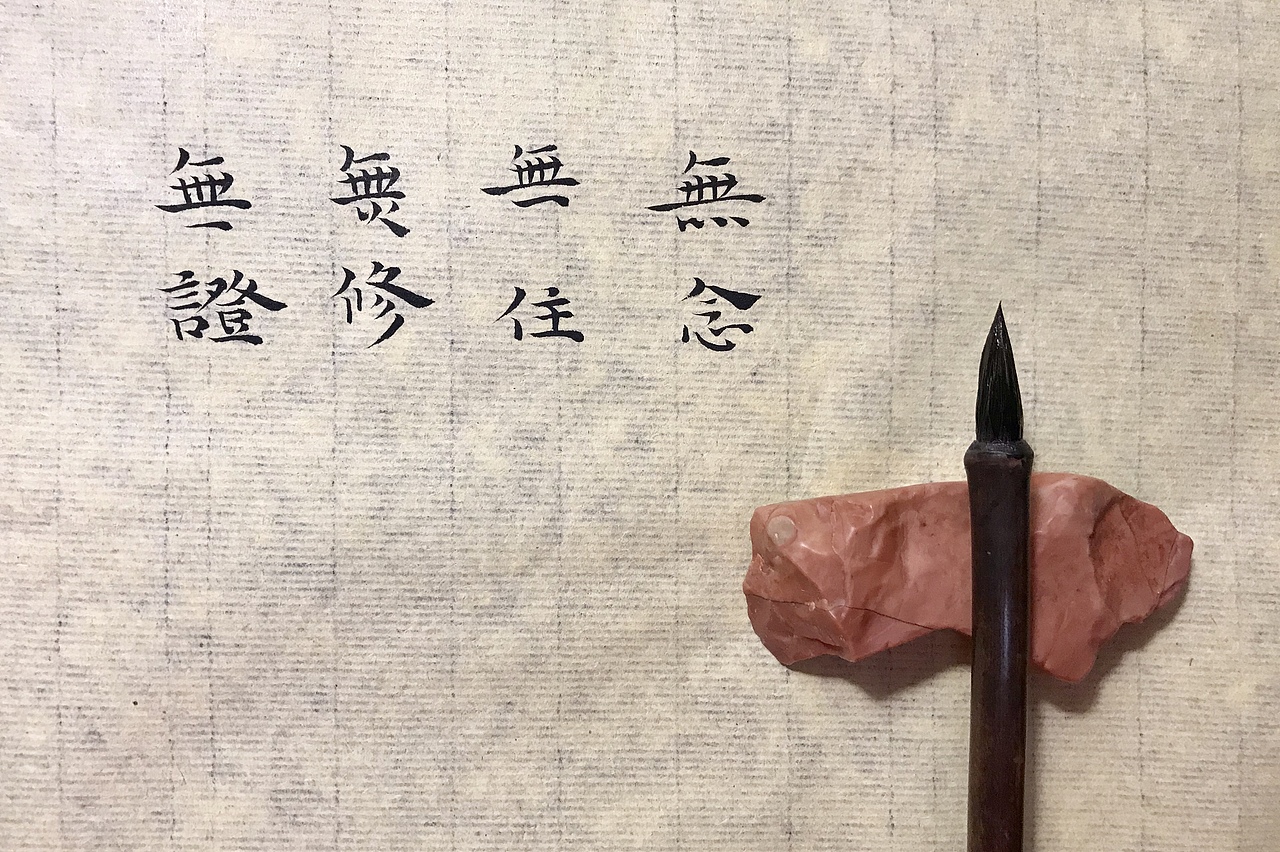 無念
無住
無修
無證